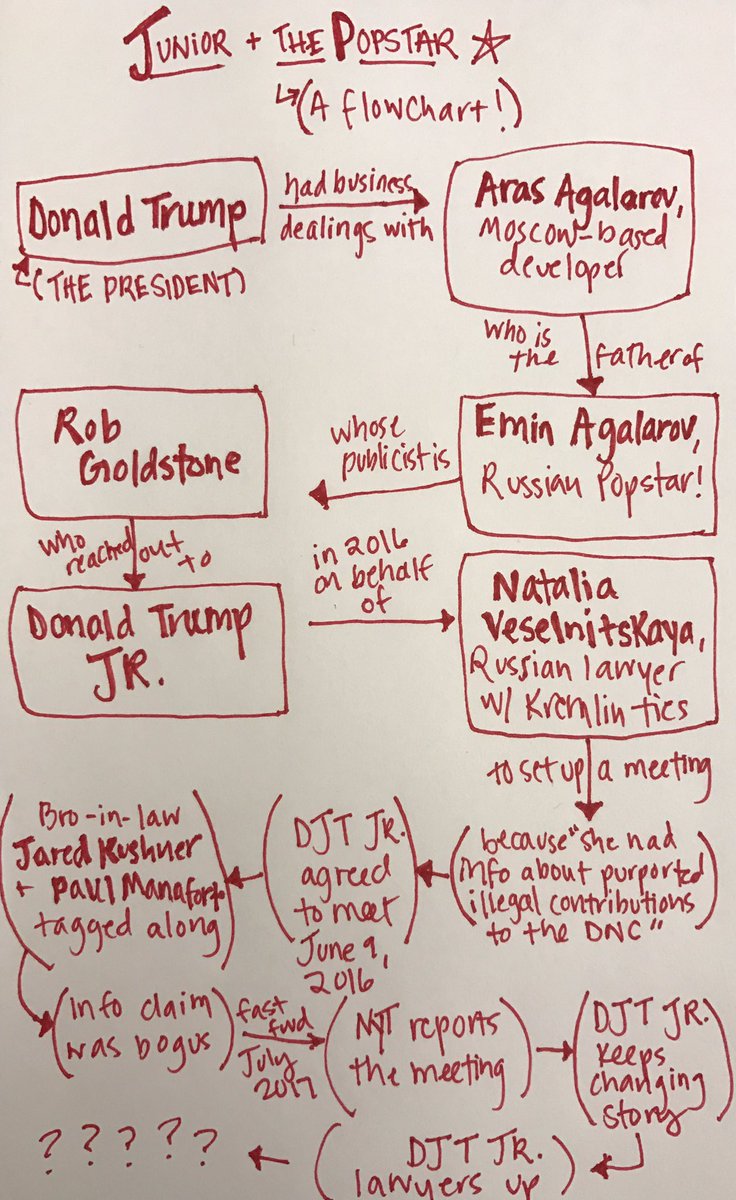 JUNIOR + THE POPSTAR
(A flowchart!)
Donald Trump
(THE PRESIDENT)
had business
dealings with
Aras Agalarov,
Moscow-based
developer
who is
the
father of
Emin Agalarov,
Russian Popstar!
whose
publicist is
Rob
Goldstone
who
reached
out
to
Donald Trump
JR.
in 2016
on behalf
of
Natalia
Veselnitskaya,
Russian lawyer
w/ Kremlin ties
to set up a meeting
(because "she had
info about purported
illegal contributions
to the DNC")
(DJT JR.
agreed
to meet
June 9,
2016)
(Bro-in-law
Jared Kushner
+ Paul Manafort
tagged along)
(Info claim
was bogus)
fast
fwd
July
2017
(NYT reports
the meeting)
(DJT JR.
keeps
changing
story)
(DJT JR.
lawyers up)
? ? ? ? ?